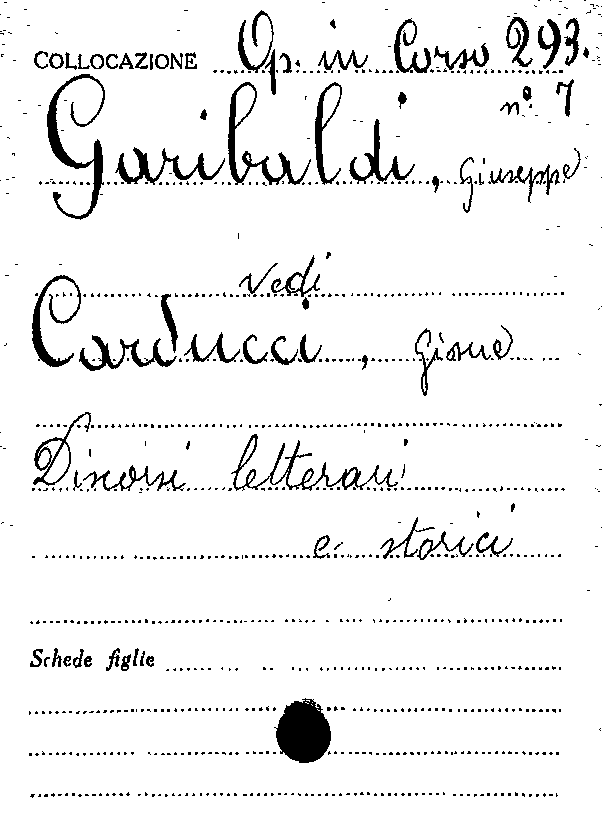 COLLOCAZIONE Op. in Corso 293.
n° 7
Garibaldi, Giuseppe
vedi
Carducci, Giosue
Discorsi letterari
e storici
Schede figlie